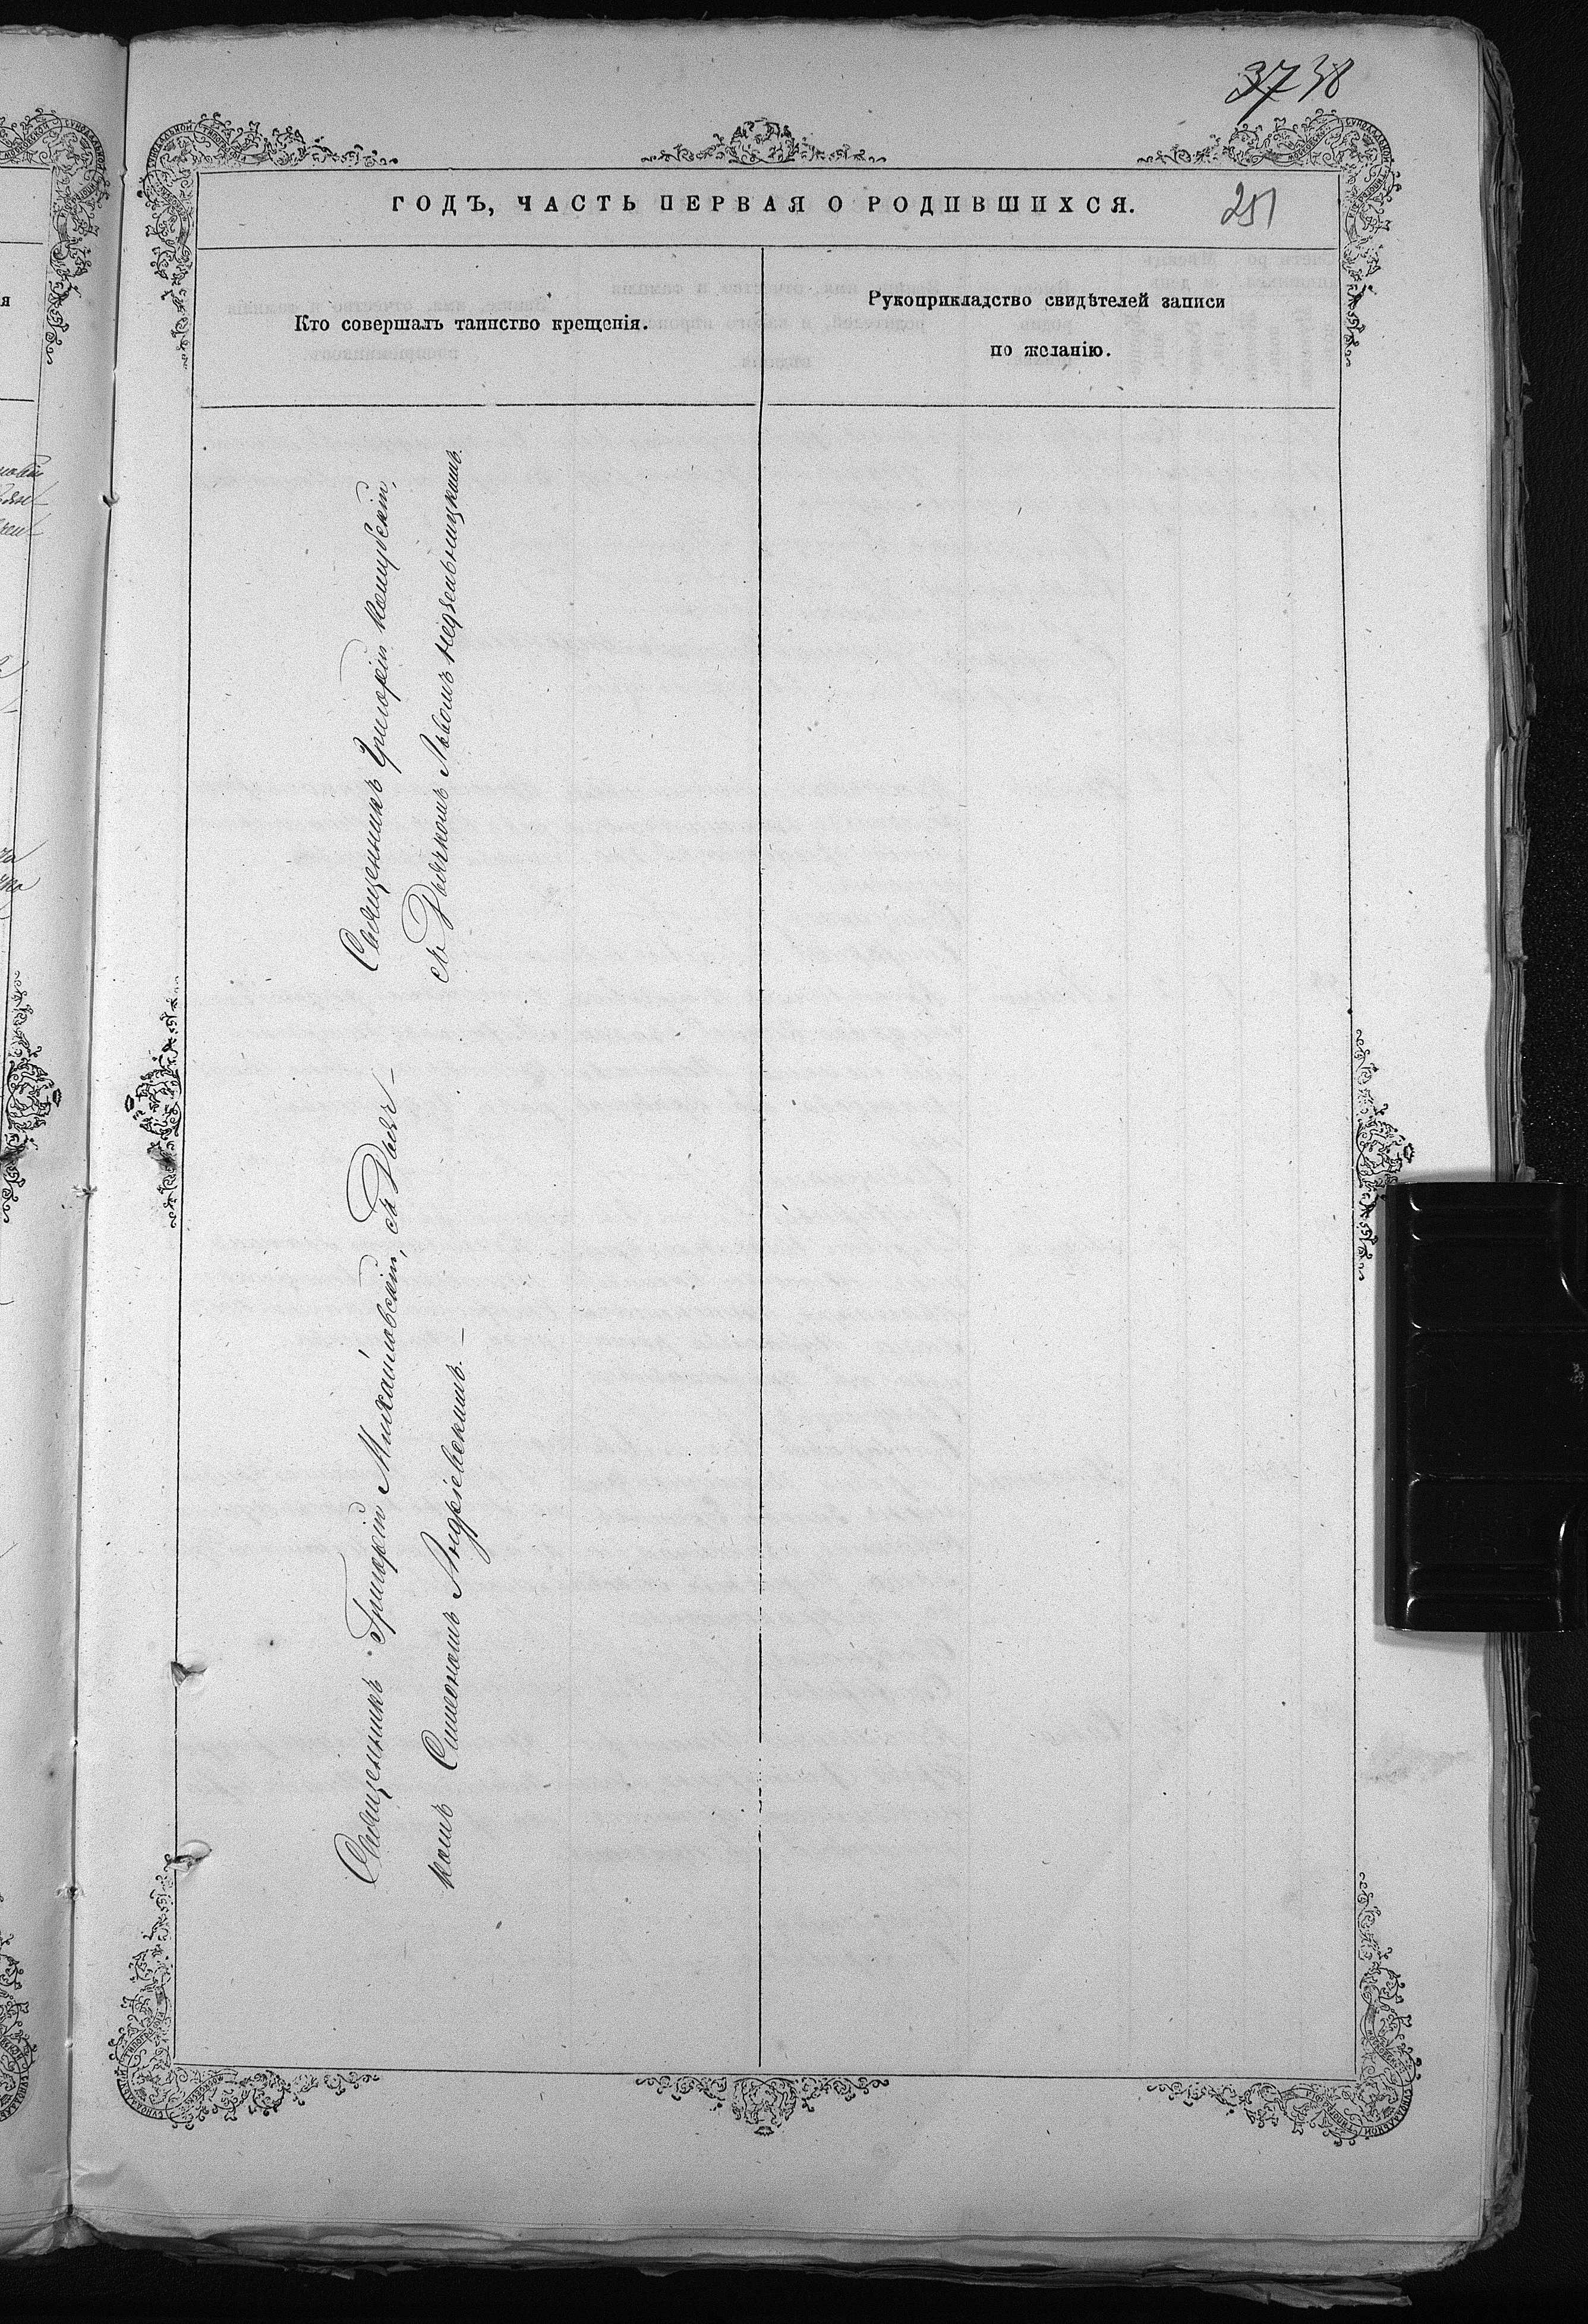 38
251
ГОДЪ, ЧАСТЬ ПЕРВАЯ О РОДИВШИХСЯ.
Кто совершалъ таинство крещенія.
Рукоприкладство свидѣтелей записи
по желанію.
Священникъ Григорій Кошубскій,
съ Дьячкомъ Львомъ Недзельницкимъ.
Священникъ Григорій Михайловскій, съ Дьяч-
комъ Симеономъ Андріевскимъ.—